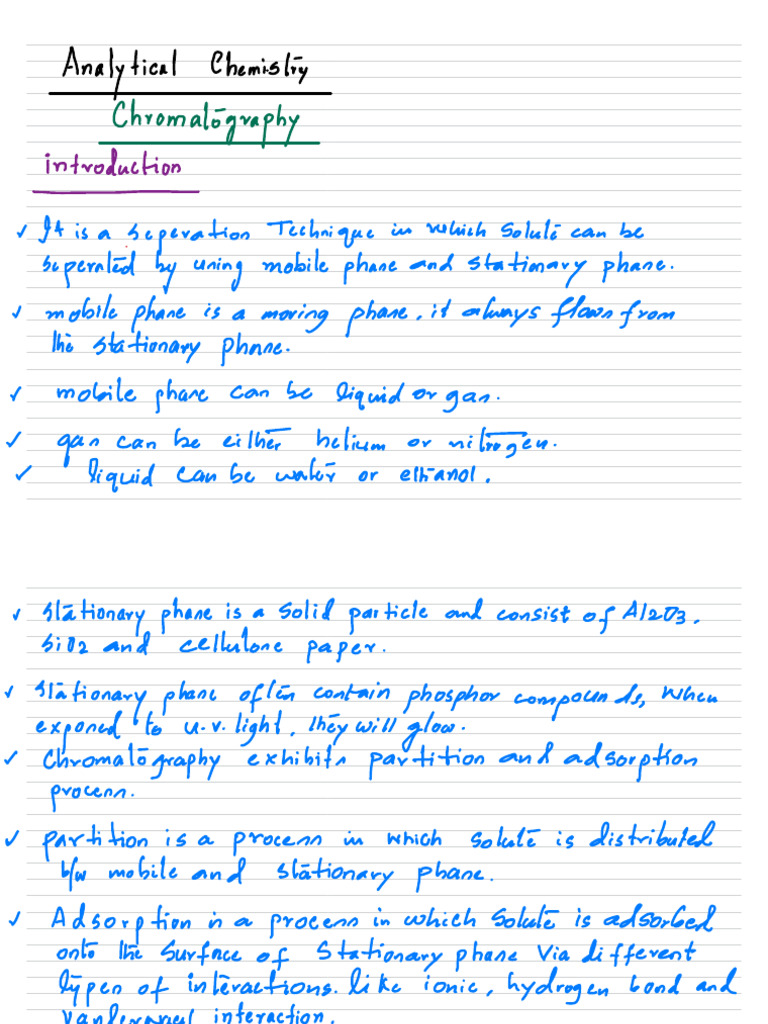 Analytical Chemistry
Chromatography
introduction
It is a seperation Technique in which solute can be
seperated by using mobile phase and stationary phase.
mobile phase is a moving phase, it always flows from
the stationary phase.
mobile phase can be liquid or gas.
gas can be either helium or nitrogen.
liquid can be water or ethanol.
stationary phase is a solid particle and consist of Al2O3,
SiO2 and cellulose paper.
stationary phase often contain phosphor compounds, when
exposed to u.v. light, they will glow.
Chromatography exhibits partition and adsorption
process.
partition is a process in which solute is distributed
b/w mobile and stationary phase.
Adsorption is a process in which solute is adsorbed
onto the surface of stationary phase via different
types of interactions. like ionic, hydrogen bond and
interaction.